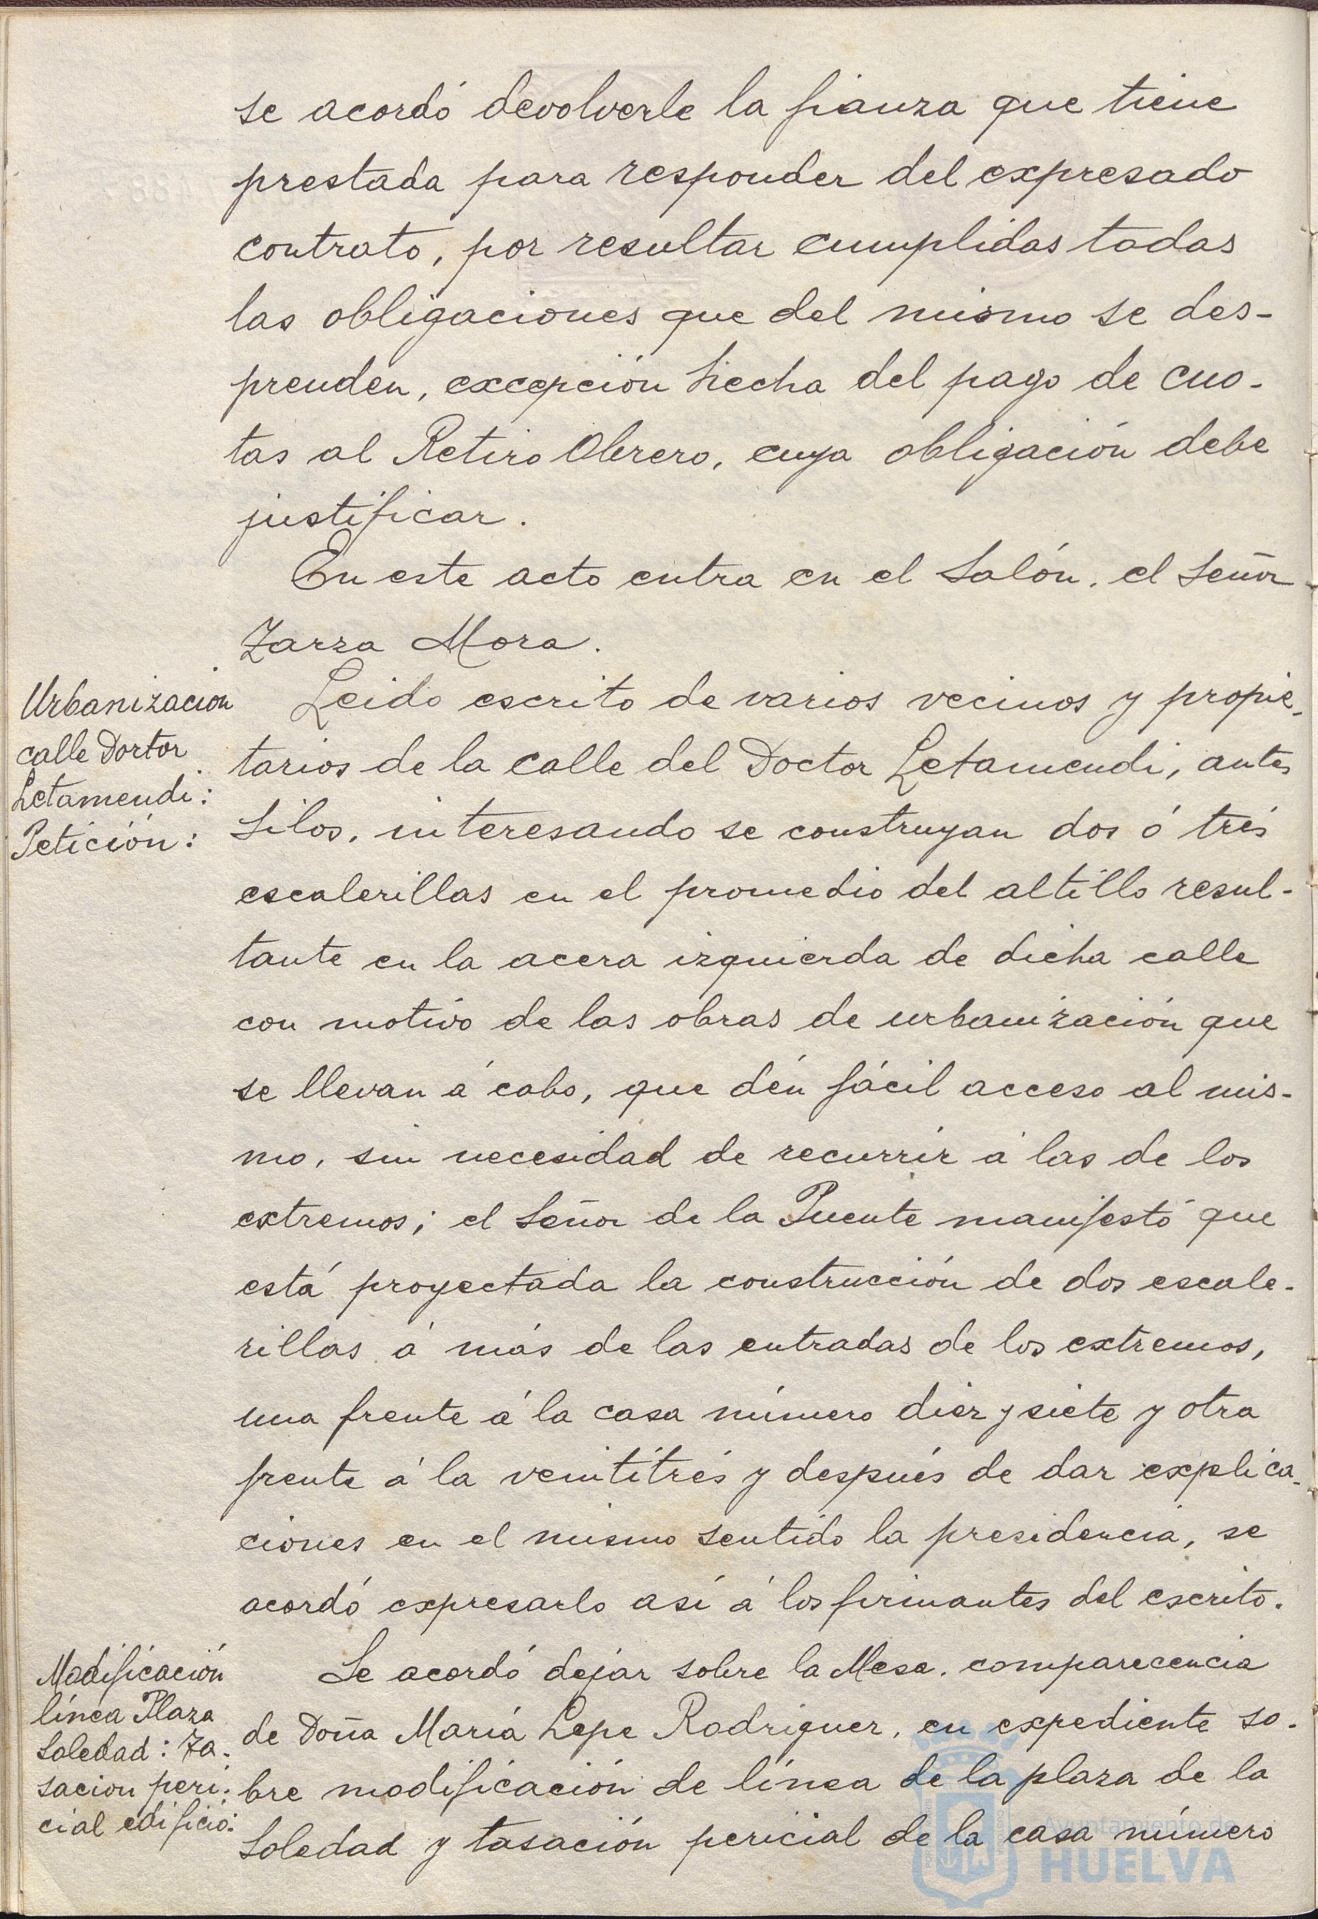 se acordó devolverle la fianza que tiene
prestada para responder del expresado
contrato, por resultar cumplidas todas
las obligaciones que del mismo se des-
prenden, excepción hecha del pago de cuo-
tas al Retiro Obrero, cuya obligación debe
justificar.
En este acto entra en el Salón, el Señor
Zarza Mora.
Urbanizacion
calle Dortor
Letamendi:
Petición:
Leido escrito de varios vecinos y propie-
tarios de la calle del Doctor Letamendi, antes
Silos, interesando se construyan dos ó trés
escalerillas en el promedio del altillo resul-
tante en la acera izquierda de dicha calle
con motivo de las obras de urbanización que
se llevan á cabo, que dén fácil acceso al mis-
mo, sin necesidad de recurrir á las de los
extremos; el Señor de la Puente manifestó que
está proyectada la construcción de dos escale-
rillas á más de las entradas de los extremos,
una frente á la casa número diez y siete y otra
frente á la veintitrés y después de dar explica-
ciones en el mismo sentido la presidencia, se
acordó expresarlo así á los firmantes del escrito.
Modificación
línea Plaza
Soledad: Ta-
sacion peri-
cial edificio:
Se acordó dejar sobre la Mesa, comparecencia
de Doña María Lepe Rodriguez, en expediente so-
bre modificación de línea de la plaza de la
Soledad y tasación pericial de la casa número
Ayuntamiento de
HUELVA